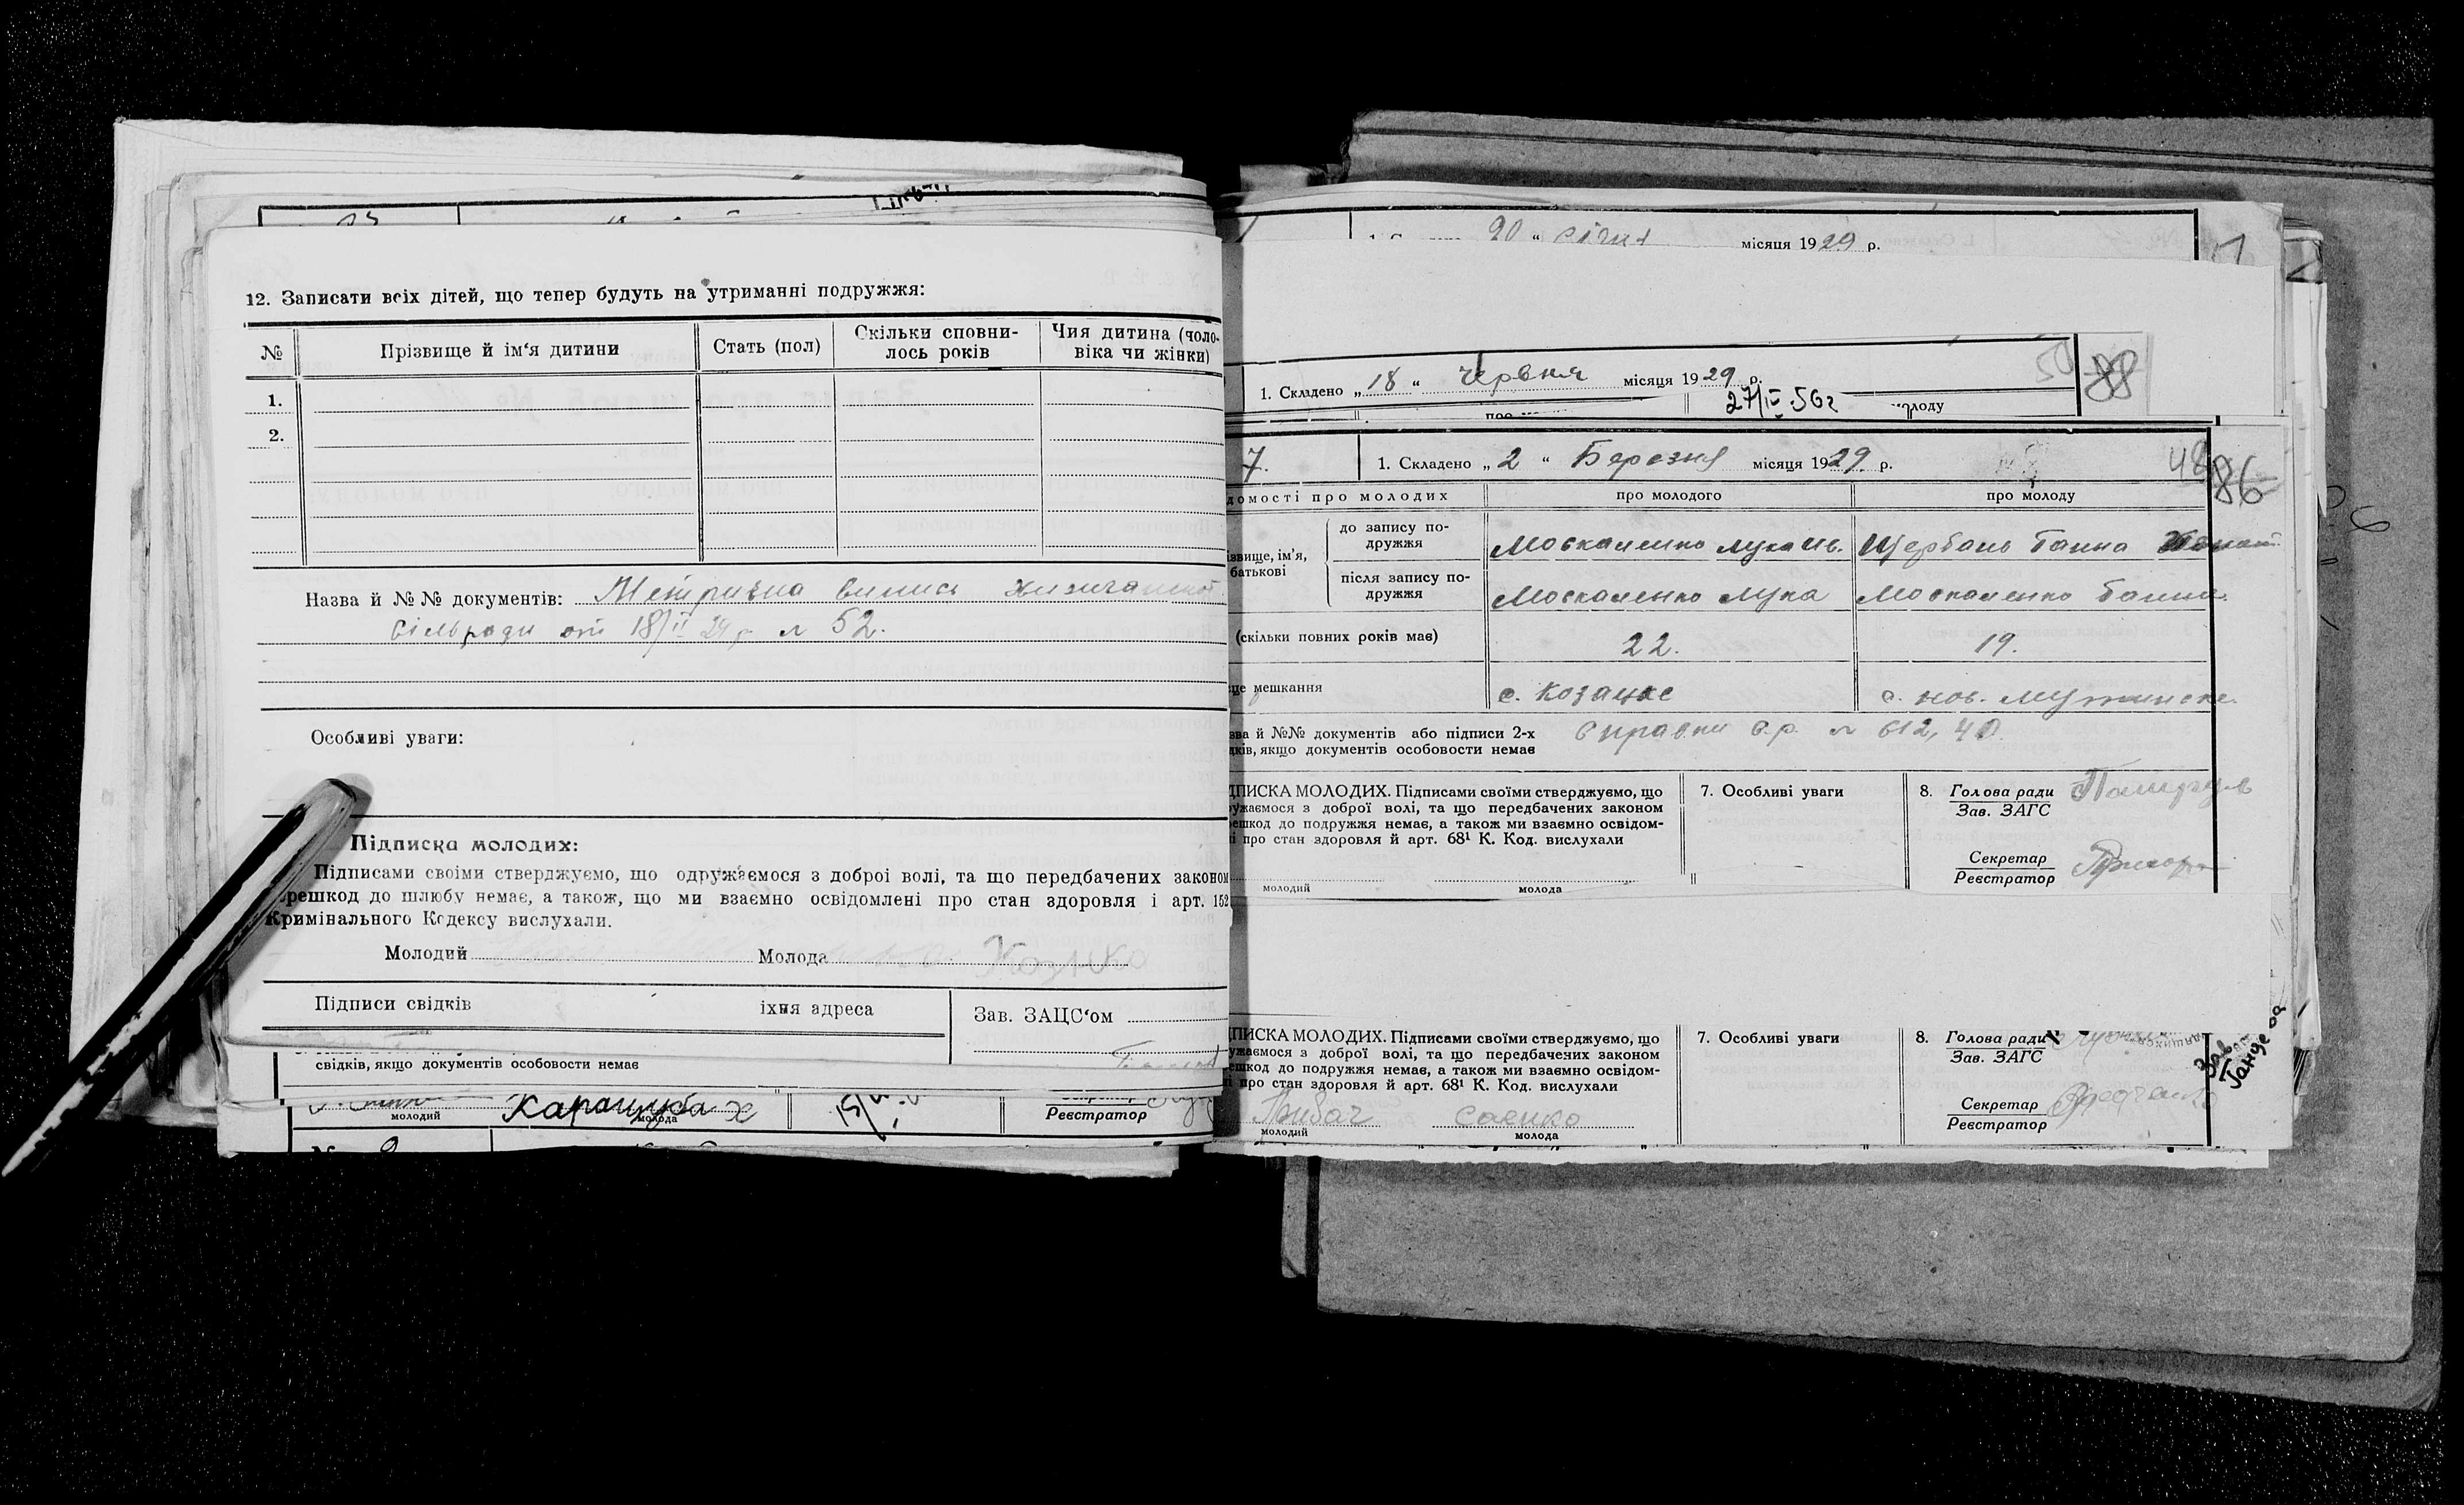 12. Записати всіх дітей, що тепер будуть на утриманні подружжя:
№ Прізвище й ім‘я дитини Стать (пол) Скільки сповни-
лось років Чия дитина (чоло-
віка чи жінки)
1.
2.
Назва й №№ документів: Метрична випись
Сільради от 18/II 29 р. № 52.
Особливі уваги:
Підписка молодих:
Підписами своіми стверджуємо, що одружаємося з доброі волі, та що передбачених законом
решкод до шлюбу немає, а також, що ми взаємно освідомлені про стан здоровля і арт. 152
Кримінального Кодексу вислухали.
Молодий Молода
Підписи свідків іхня адреса Зав. ЗАЦС‘ом
свідків, якщо документів особовости немає
молодий Карацуба Х молода Реєстратор
місяця 1929 р.
1. Складено „18“ червня місяця 1929 р. 88
27/IV.56г молоду
7. 1. Складено „2“ Березня місяця 1929 р. 48 86
домості про молодих про молодого про молоду
ізвище, ім’я,
батькові
до запису по-
дружжя Москаленко Лука Ів. Щербань Ганна
після запису по-
дружжя Москаленко Лука Москаленко Ганна
(скільки повних років має) 22. 19.
це мешкання с. Козацке с. нов.
зва й №№ документів або підписи 2-х
дків, якщо документів особовости немає Справки с.р. № 612, 40
ДПИСКА МОЛОДИХ. Підписами своїми стверджуємо, що
ружаємося з доброї волі, та що передбачених законом
ешкод до подружжя немає, а також ми взаємно освідом-
і про стан здоровля й арт. 68¹ К. Код. вислухали
молодий молода
7. Особливі уваги
8. Голова ради
Зав. ЗАГС
Секретар
Реєстратор
ДПИСКА МОЛОДИХ. Підписами своїми стверджуємо, що
ужаємося з доброї волі, та що передбачених законом
ешкод до подружжя немає, а також ми взаємно освідом-
і про стан здоровля й арт. 68¹ К. Код. вислухали
саєнко
молодий молода
7. Особливі уваги
8. Голова ради
Зав. ЗАГС
Секретар
Реєстратор